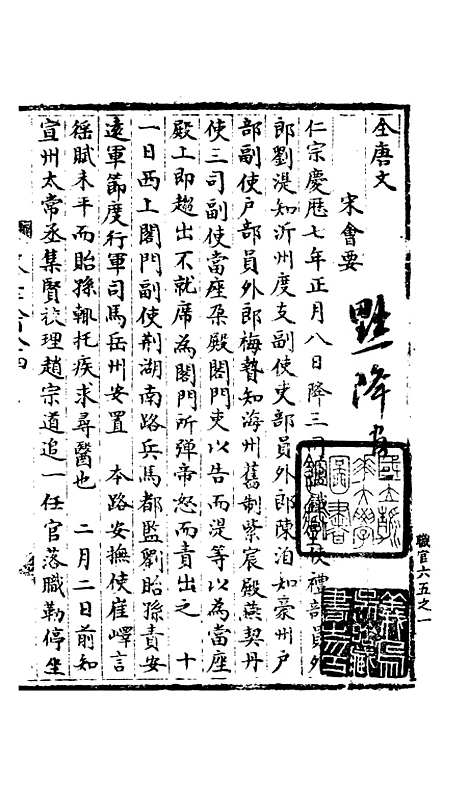 全唐文
宋會要
黜降官
仁宗慶曆七年正月八日降三司鹽鐵副使禮部員外
郎劉湜知沂州度支副使吏部員外郎陳洎知濠州戶
部副使戶部員外郎梅摯知海州舊制紫宸殿燕契丹
使三司副使當座朶殿閤門吏以告而湜等以為當座
殿上即趨出不就席為閤門所彈帝怒而責出之　十
一日西上閤門副使荆湖南路兵馬都監劉貽孫責安
遠軍節度行軍司馬岳州安置　本路安撫使崔嶧言
徭賊未平而貽孫輒托疾求尋醫也　二月二日前知
宣州太常丞集賢校理趙宗道追一任官落職勒停坐
職官六五之一